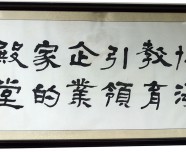 教育
引領
企業
家的
殿堂